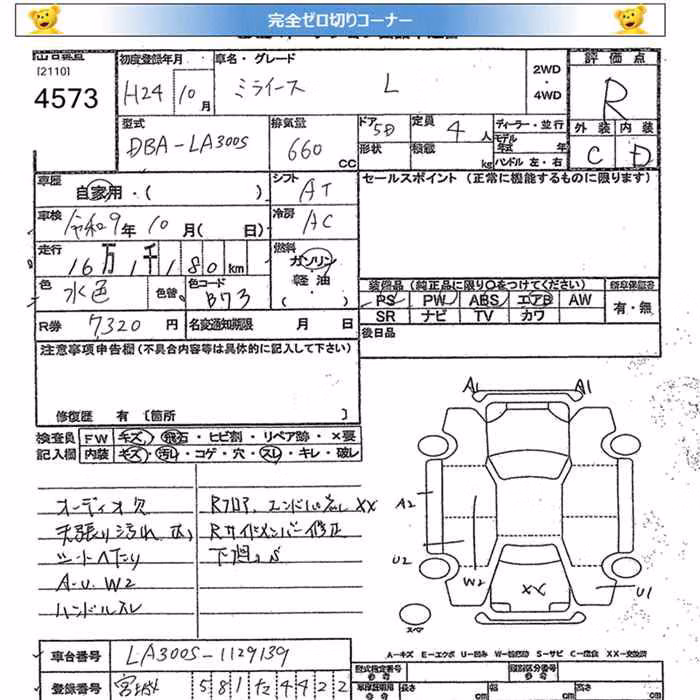 完全ゼロ切りコーナー
[2110]
4573
初度登録年月
H24 10 月
車名・グレード
ミライース L
2WD
・
4WD
評価点
R
外装 内装
C D
型式
DBA-LA300S
排気量
660 CC
ドア 5D
形状
定員 4 人
積載 kg
ディーラー・並行
モデル年式 年
ハンドル 左・右
車歴
自家用・( )
シフト
AT
セールスポイント (正常に機能するものに限ります)
車検
令和9年 10 月( 日)
冷房
AC
走行
16万1千180km
燃料
ガソリン
軽油
・
色
水色
色替
色コード
B73
装備品 (純正品に限り〇をつけてください)
PS PW ABS エアB AW
SR ナビ TV カワ
有・無
R券 7320 円
名変通知期限 月 日
後日品
注意事項申告欄 (不具合内容等は具体的に記入して下さい)
修復歴 有 〔箇所 〕
検査員 FW キズ・飛石・ヒビ割・リペア跡・×要
記入欄 内装 キズ・汚れ・コゲ・穴・スレ・キレ・破レ
オーディオ欠
天張り汚れ
シートヘたり
A-U.W2
ハンドルスレ
Rフロア、エンドパネル XX
Rサイドメンバー修正
A1 A1
A2
U2
W2
XX
U1
スペア
A-キズ E-エクボ U-凹み W-補修跡 S-サビ C-腐食 XX-交換済
車台番号 LA300S-1129139
登録番号 宮城 581 た 4422
型式指定番号
類別区分番号
長さ cm 幅 cm 高さ cm